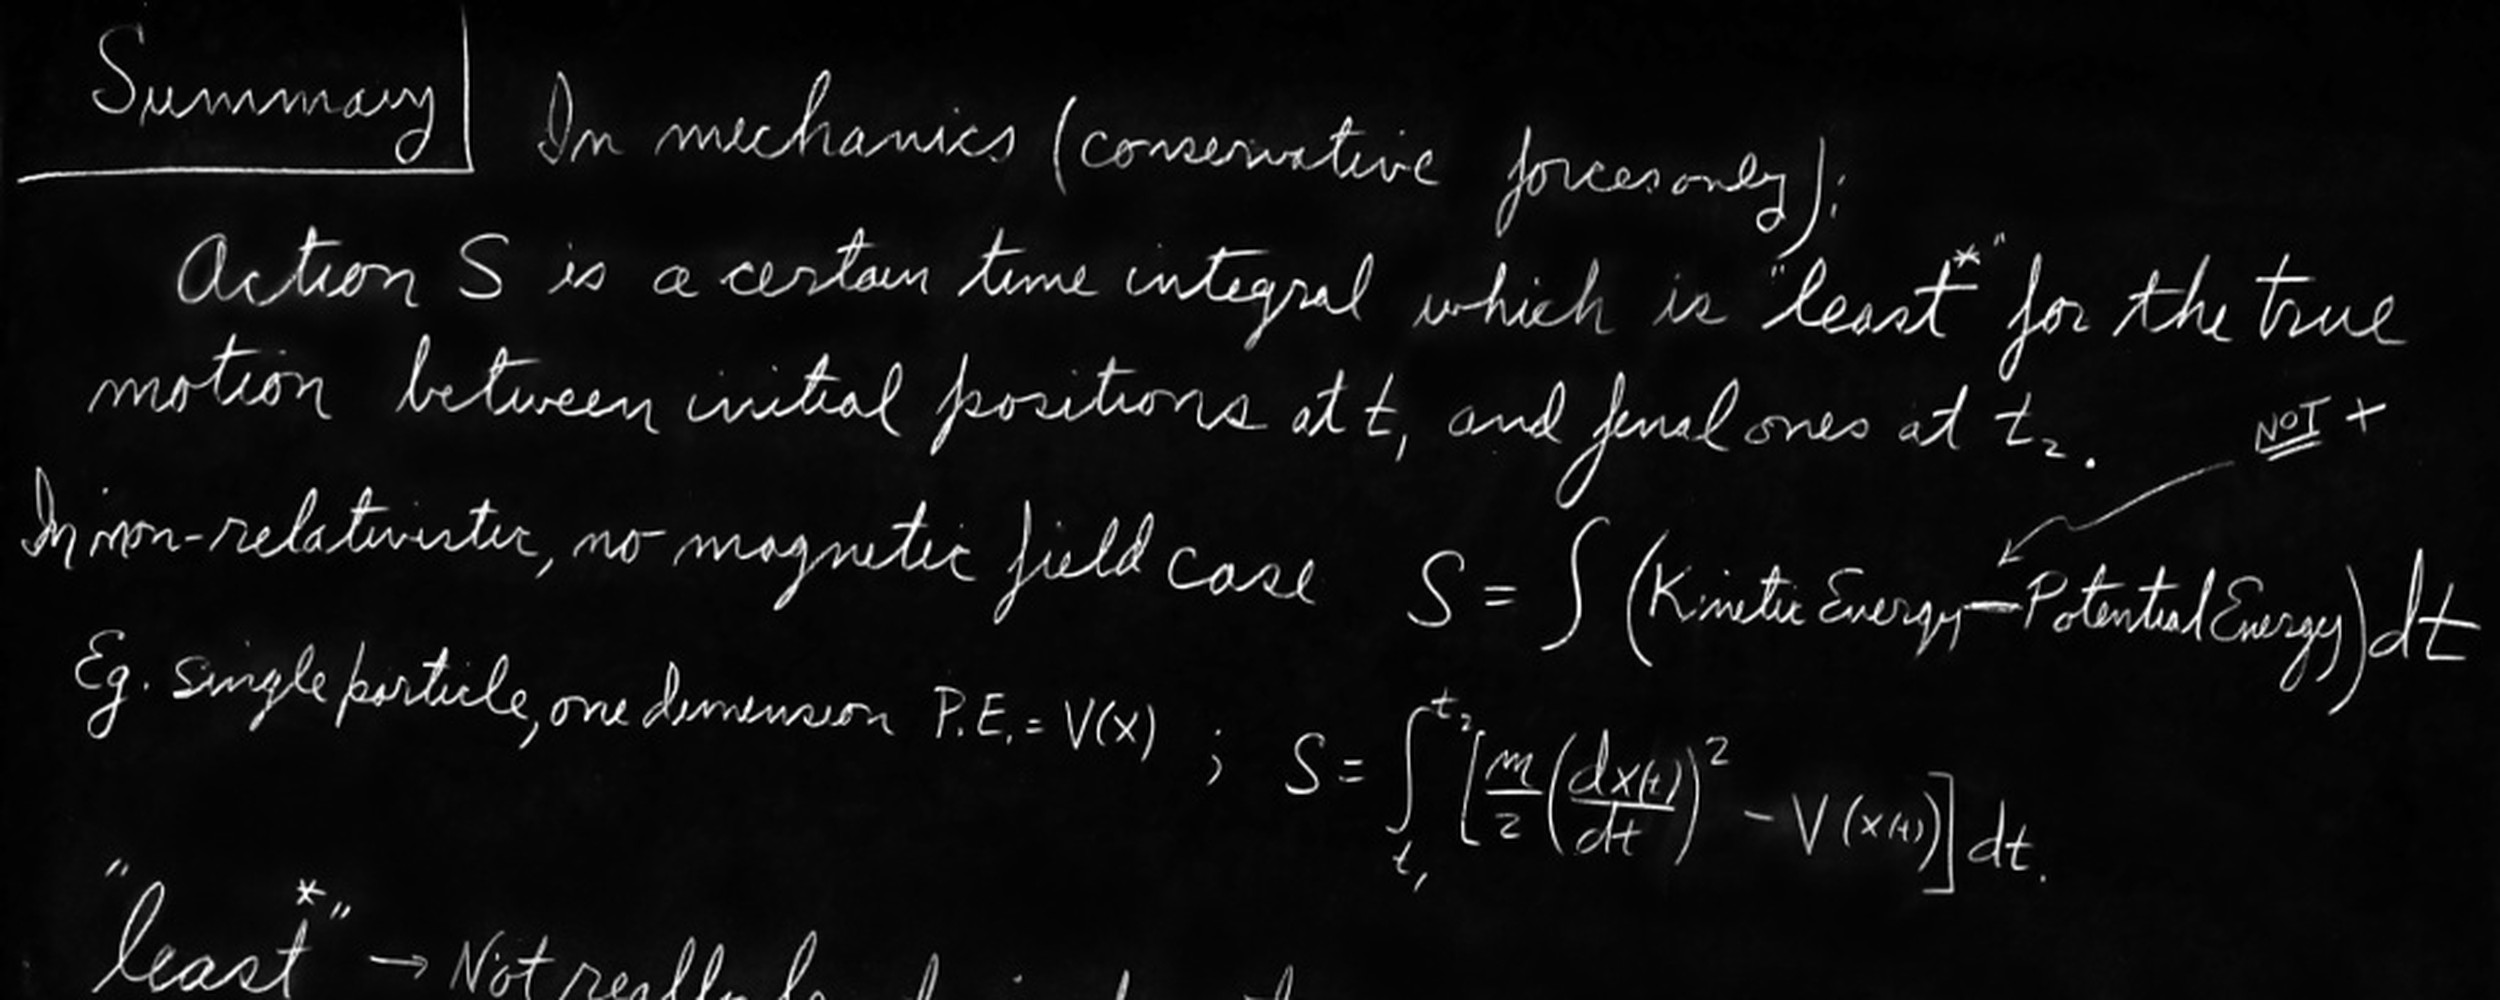 Summary
In mechanics (conservative forces only):
Action S is a certain time integral which is "least*" for the true
motion between initial positions at t₁ and final ones at t₂.
NOT +
In non-relativistic, no magnetic field case S = ∫ (Kinetic Energy — Potential Energy) dt
Eg. single particle, one dimension P.E. = V(x) ; S = ∫_{t₁}^{t₂} [m/2 (dx(t)/dt)² - V(x(t))] dt.
"least*" → Not really